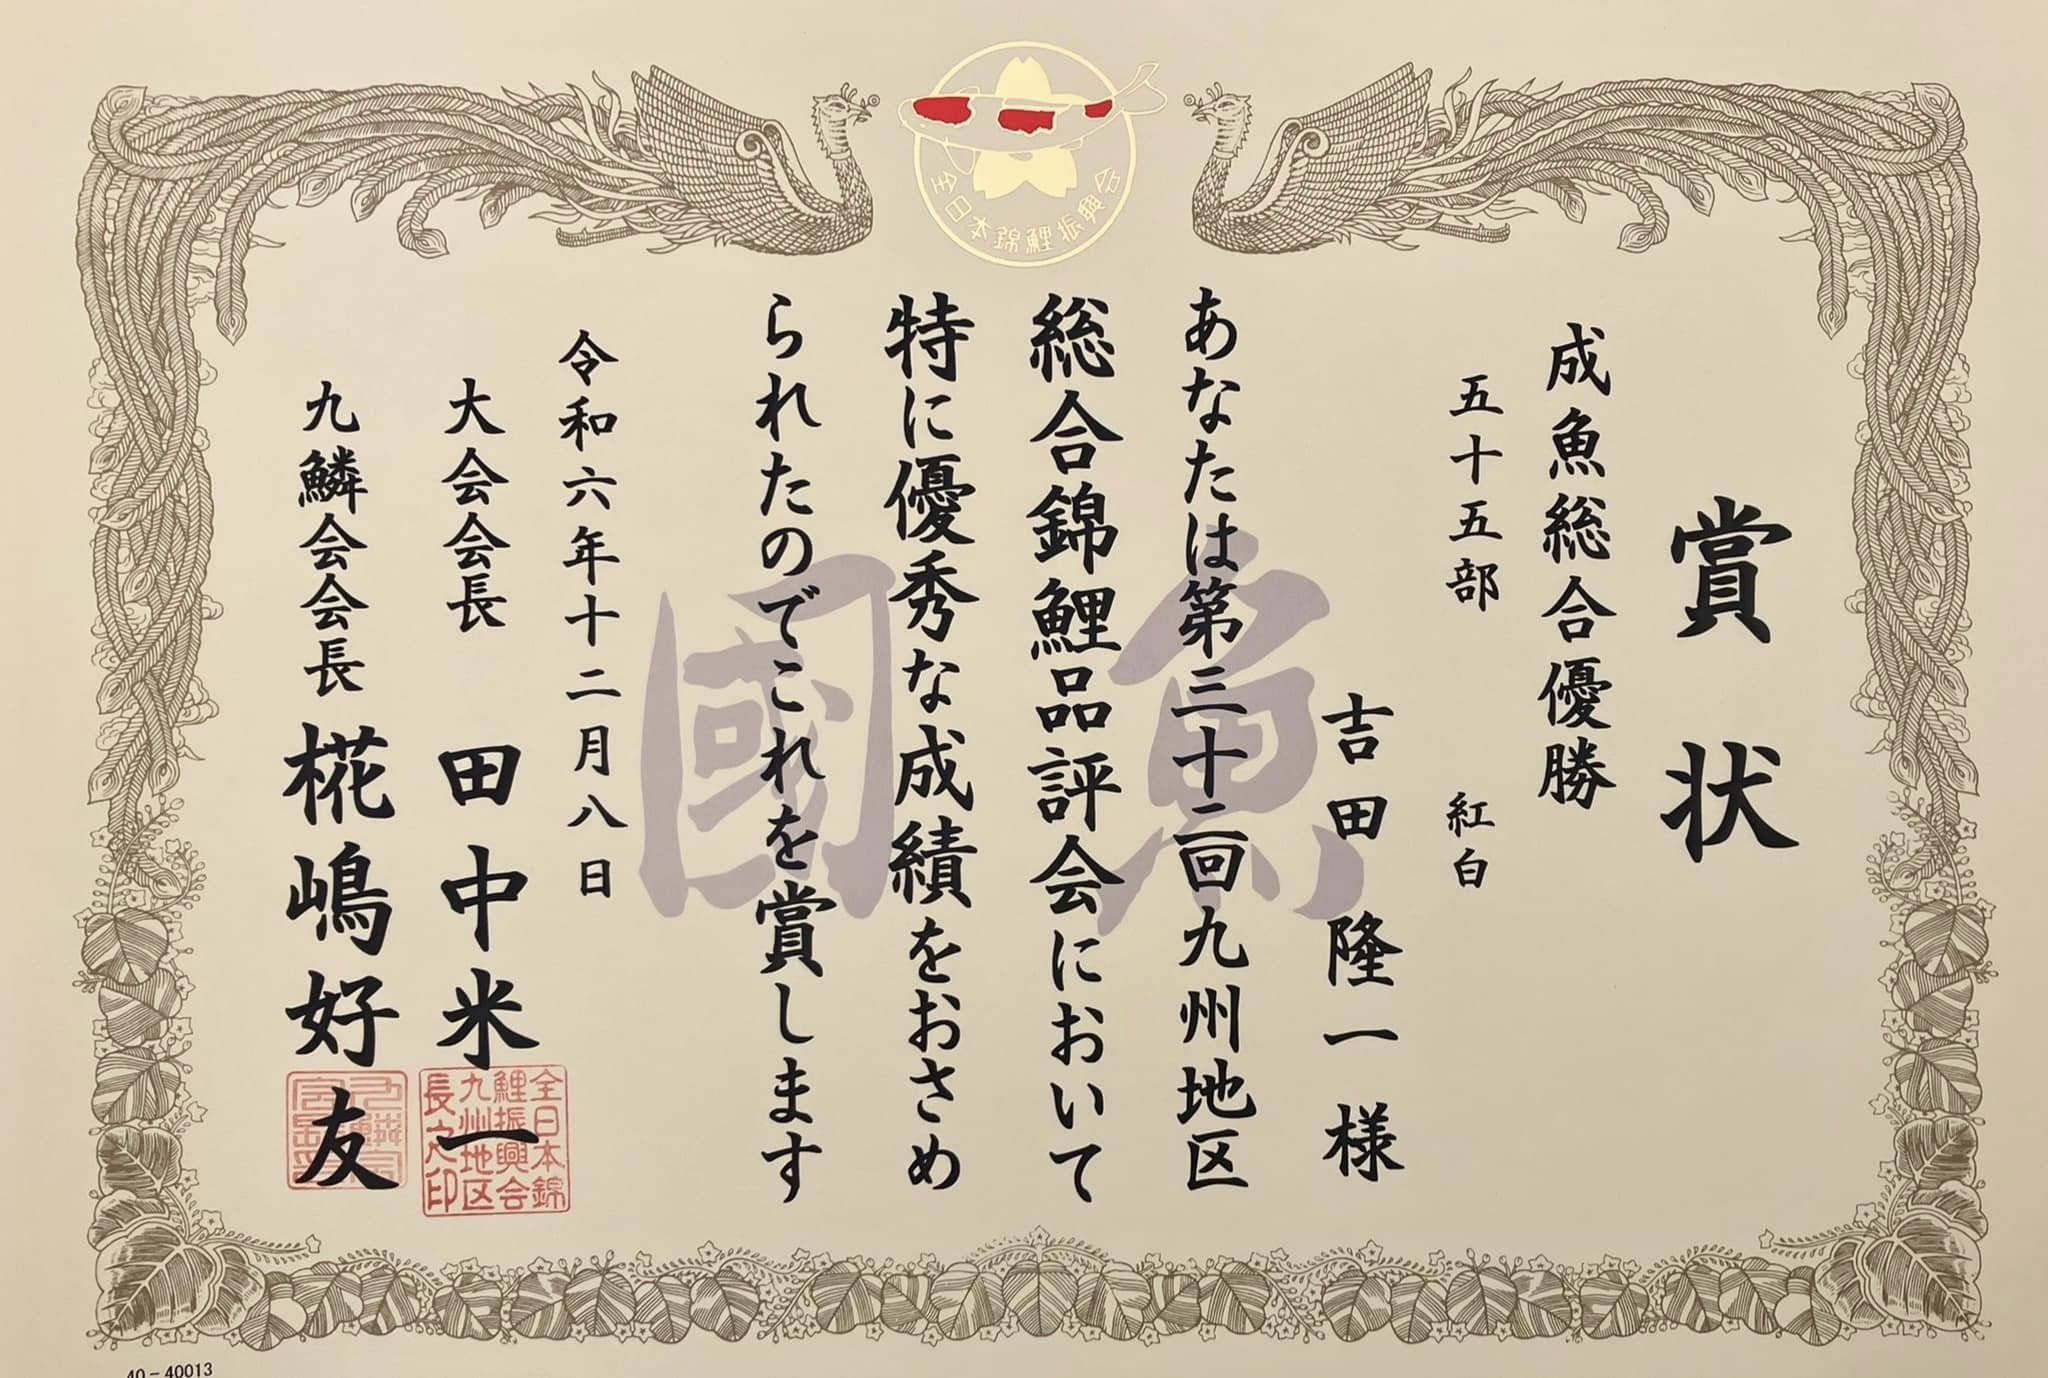 全日本錦鯉振興会
賞状
成魚総合優勝
五十五部 紅白
吉田隆一様
あなたは第三十二回九州地区
総合錦鯉品評会において
特に優秀な成績をおさめ
られたのでこれを賞します
令和六年十二月八日
大会会長 田中米一
九鱗会会長 椛嶋好友
魚国
全日本錦
鯉振興会
九州地区
長之印
40-40013